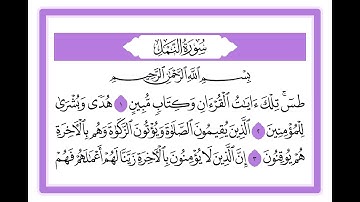 سُورَةُ النَّمْلِ
بِسْمِ اللَّهِ الرَّحْمَٰنِ الرَّحِيمِ
طسٓ ۚ تِلْكَ ءَايَٰتُ الْقُرْءَانِ وَكِتَابٍ مُّبِينٍ ١ هُدًى وَبُشْرَىٰ
لِلْمُؤْمِنِينَ ٢ الَّذِينَ يُقِيمُونَ الصَّلَوٰةَ وَيُؤْتُونَ الزَّكَوٰةَ وَهُم بِالْءَاخِرَةِ
هُمْ يُوقِنُونَ ٣ إِنَّ الَّذِينَ لَا يُؤْمِنُونَ بِالْءَاخِرَةِ زَيَّنَّا لَهُمْ أَعْمَٰلَهُمْ فَهُمْ